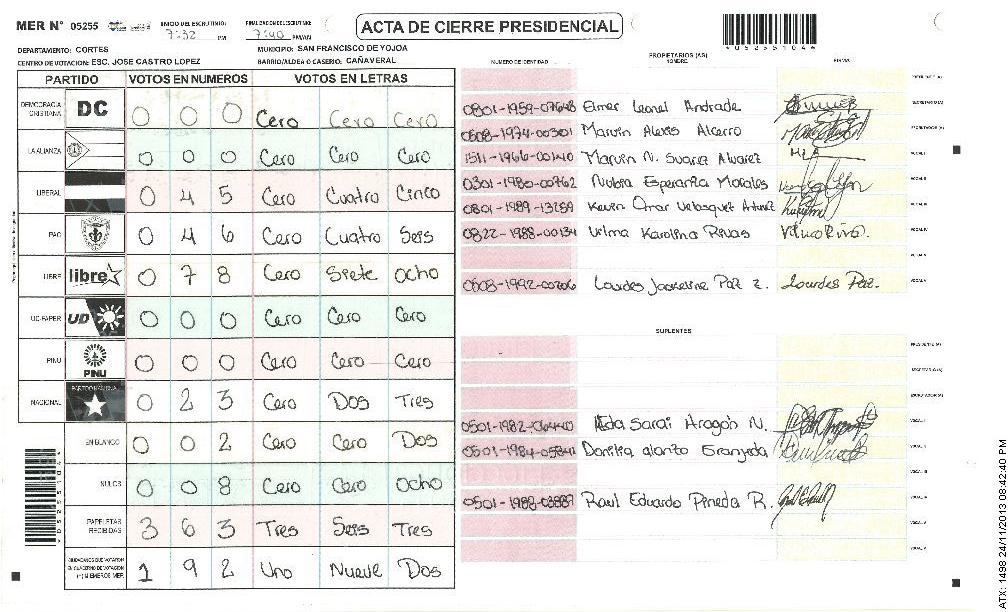 MER N° 05255 INICIO DEL ESCRUTINIO: 7:32 PM FINALIZACION DEL ESCRUTINIO: 7:40 PM/AM
ACTA DE CIERRE PRESIDENCIAL
DEPARTAMENTO: CORTES MUNICIPIO: SAN FRANCISCO DE YOJOA
CENTRO DE VOTACION: ESC. JOSE CASTRO LOPEZ BARRIO/ALDEA O CASERIO: CAÑAVERAL
PARTIDO VOTOS EN NUMEROS VOTOS EN LETRAS
DEMOCRACIA CRISTIANA DC 0 0 0 Cero Cero Cero
LA ALIANZA 0 0 0 Cero Cero Cero
LIBERAL 0 4 5 Cero Cuatro Cinco
PAC 0 4 6 Cero Cuatro Seis
LIBRE libre 0 7 8 Cero Siete Ocho
UD-FAPER UD 0 0 0 Cero Cero Cero
PINU PINU 0 0 0 Cero Cero Cero
NACIONAL PARTIDO NACIONAL 0 2 3 Cero Dos Tres
EN BLANCO 0 0 2 Cero Cero Dos
NULOS 0 0 8 Cero Cero Ocho
PAPELETAS RECIBIDAS 3 6 3 Tres Seis Tres
CIUDADANOS QUE VOTARON EN CUADERNO DE VOTACION (+) MIEMBROS MER. 1 9 2 Uno Nueve Dos
NUMERO DE IDENTIDAD PROPIETARIOS (AS) NOMBRE FIRMA
PRESIDENTE (A)
0801-1959-07648 Elmer Leonel Andrade SECRETARIO (A)
0508-1974-00301 Marvin Alexis Alcerro ESCRUTADOR (A)
1511-1966-00140 Marvin N. Suarez Alvarez VOCAL I
0301-1980-00762 Nubia Esperanza Morales VOCAL II
0801-1989-13259 Kevin Omar Velasquez VOCAL III
0822-1988-00134 Vilma Karolina Rivas VOCAL IV
VOCAL V
0508-1992-00206 Lourdes Jackeline Paz Z. Lourdes Paz.
SUPLENTES
PRESIDENTE (A)
SECRETARIO (A)
ESCRUTADOR (A)
0501-1982- Sarai Aragón N. VOCAL I
0501-1984- VOCAL II
VOCAL III
0501-1988-03887 Raul Eduardo Pineda R. VOCAL IV
VOCAL V
ATX: 1498 24/11/2013 08:42:40 PM